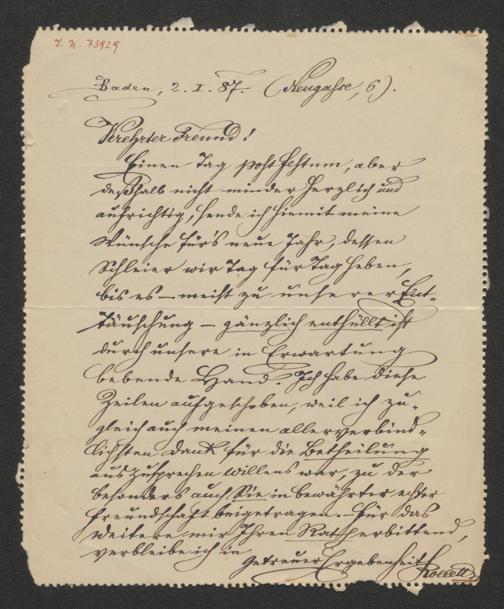 I. N. 73929
Baden, 2. I. 87. (Neugasse, 6).
Verehrter Freund!
Einen Tag post festum, aber
deßhalb nicht minder herzlich und
aufrichtig, sende ich hiemit meine
Wünsche für's neue Jahr, dessen
Schleier wir Tag für Tag heben,
bis es – meist zu unserer Ent-
täuschung – gänzlich enthüllt ist
durch unsere in Erwartung
bebende Hand. Ich habe diese
Zeilen aufgeschoben, weil ich zu-
gleich auch meinen allerverbind-
lichsten Dank für die Betheilung
auszusprechen Willens war, zu der
besonders auch Sie in bewährter echter
Freundschaft beigetragen. Für das
weitere mir Ihren Rath erbittend,
verbleibe ich in
getreuer Ergebenheit Rollett